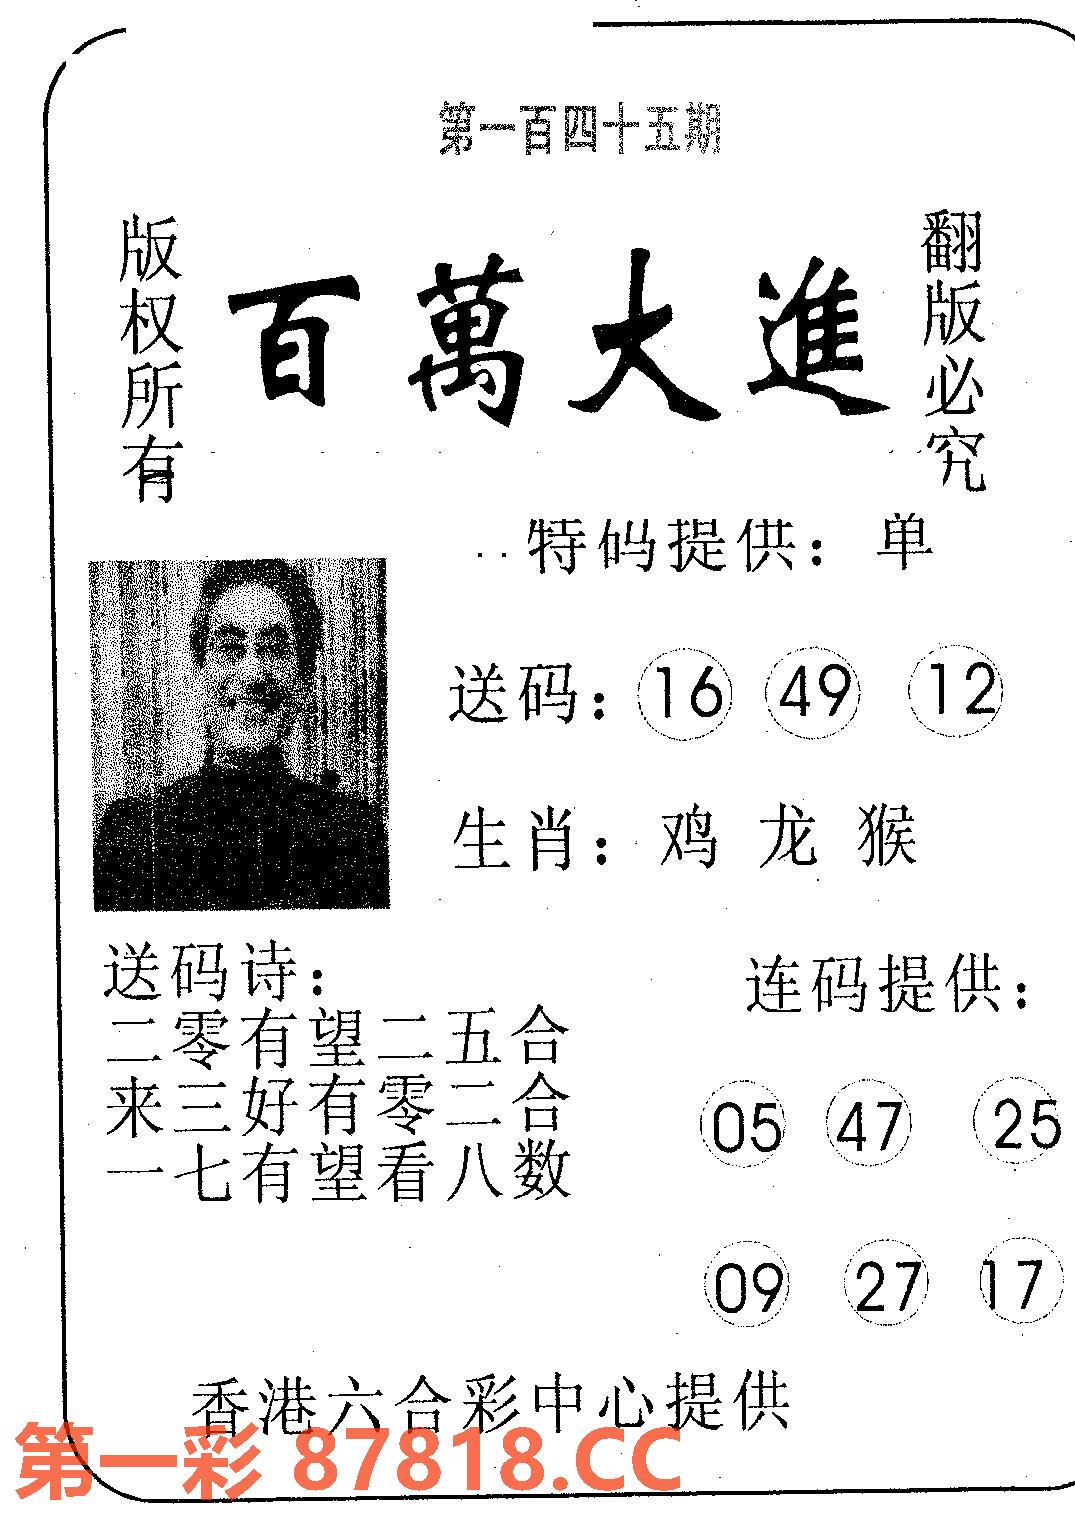 第一百四十五期
版权所有
百萬大進
翻版必究
特码提供：单
送码：16 49 12
生肖：鸡 龙 猴
送码诗：
二零有望二五合
来三好有零二合
一七有望看八数
连码提供：
05 47 25
09 27 17
香港六合彩中心提供
第一彩 87818.CC